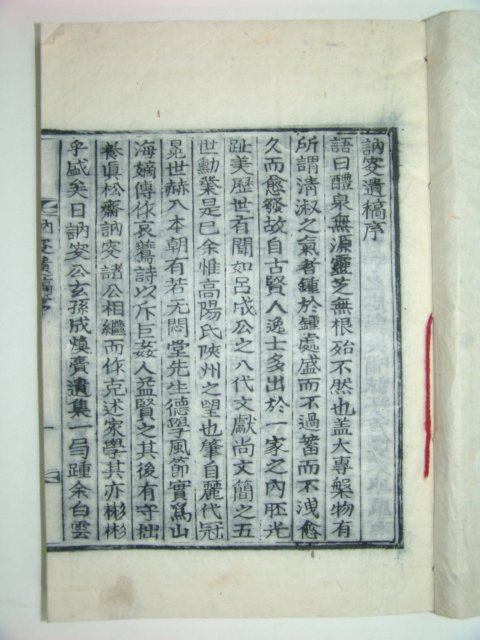 訥窔遺稿序
語曰醴泉無源靈芝無根殆不然也盖大專槃物有
所謂清淑之氣者鍾於鍾處盛而不過蓄而不洩愈
久而愈發故自古賢人逸士多出於一家之內胚光
趾美歷世有聞如呂成公之八代文獻尚文簡之五
世勳業是已余惟高陽氏陜州之望也肇自麗代冠
冕世赫入本朝有若无悶堂先生德學風節實爲山
海嫡傳作哀鶩詩以斥巨奸人益賢之其後有守拙
養眞松齋訥窔諸公相繼而作克述家學其亦彬彬
乎盛矣日訥窔公玄孫成煥賷遺集一局踵余白雲